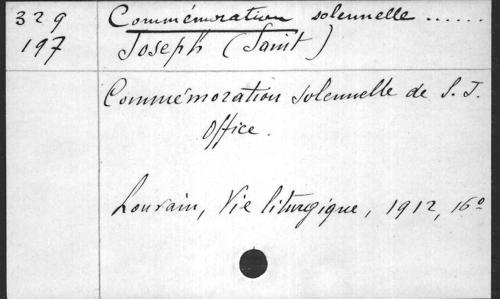 329 Commémoration solennelle ......
197 Joseph (Saint)
Commémoration solennelle de S. J.
Office.
Louvain, Vie liturgique, 1912, 16°